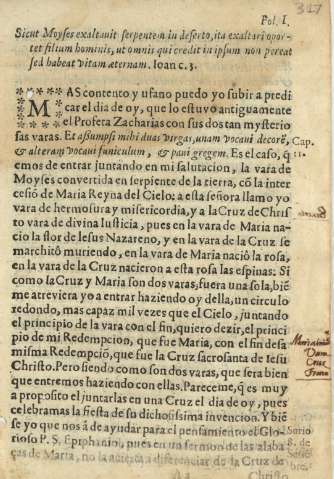 317
Fol. I.
Sicut Moyses exaltauit serpentem in deserto, ita exaltari opor-
tet filium hominis, ut omnis qui credit in ipsum non pereat
sed habeat vitam æternam. Ioan c. 3.
MAS contento y ufano puedo yo subir a predi
car el dia de oy, que lo estuvo antiguamente
el Profeta Zacharias con sus dos tan mysterio
sas varas. Et assumpsi mihi duas virgas, unam vocavi decorẽ,
& alteram vocavi funiculum, & pavi gregem. Es el caso, q̃
Cap.
11.
emos de entrar juntando en mi salutacion, la vara de
Moyses convertida en serpiente de la tierra, cõ la inter
cesiõ de Maria Reyna del Cielo: a esta señora llamo yo
vara de hermosura y misericordia, y a la Cruz de Chris
to vara de divina Iusticia, pues en la vara de Maria na-
cio la flor de Iesus Nazareno, y en la vara de la Cruz se
marchitò muriendo, en la vara de Maria naciò la rosa,
en la vara de la Cruz nacieron a esta rosa las espinas: Si
como la Cruz y Maria son dos varas, fuera una sola, biẽ
me atreviera yo a entrar haziendo dẽ della, un circulo
redondo, mas capaz mil vezes que el Cielo, juntando
el principio de la vara con el fin, quiero dezir, el princi
pio de mi Redempcion, que fue Maria, con el fin desta
misma Redempciõ, que fue la Cruz sacrosanta de Iesu
Christo. Pero siendo como son dos varas, que serà bien
que entremos haziendo con ellas. Pareceme, q̃ es muy
a proposito el juntarlas en una Cruz el dia de oy, pues
celebramas la fiesta de su dichosissima invencion. Y biẽ
se yo que nos à de ayudar para el pensamiento el Glo-
rioso P. S. Epiphanio, pues en un sermon de las alabã
ças de Maria, no la acierta a diferenciar de la Cruz de
Christo